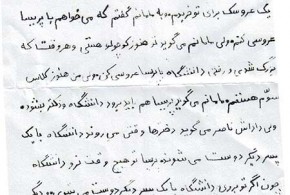 یک عروسک برای تو خریدم و به مامانم گفتم که می‌خواهم با پریسا
عروسی کنم ولی مامانم می‌گوید تو هنوز کوچولو هستی و هر وقت که
بزرگ شدی و رفتی دانشگاه با پریسا عروسی کن ولی من هنوز کلاس
سوّم هستم و مامانم می‌گوید پریسا هم باید برود دانشگاه و دکتر بشود
ولی داداش ناصر می‌گوید دخترها وقتی می روند دانشگاه با یک
پسر دیگر دوست می شوند پریسا تو هیچ وقت نرو دانشگاه
چون اگر تو بروی دانشگاه با یک پسر دیگر دوست می